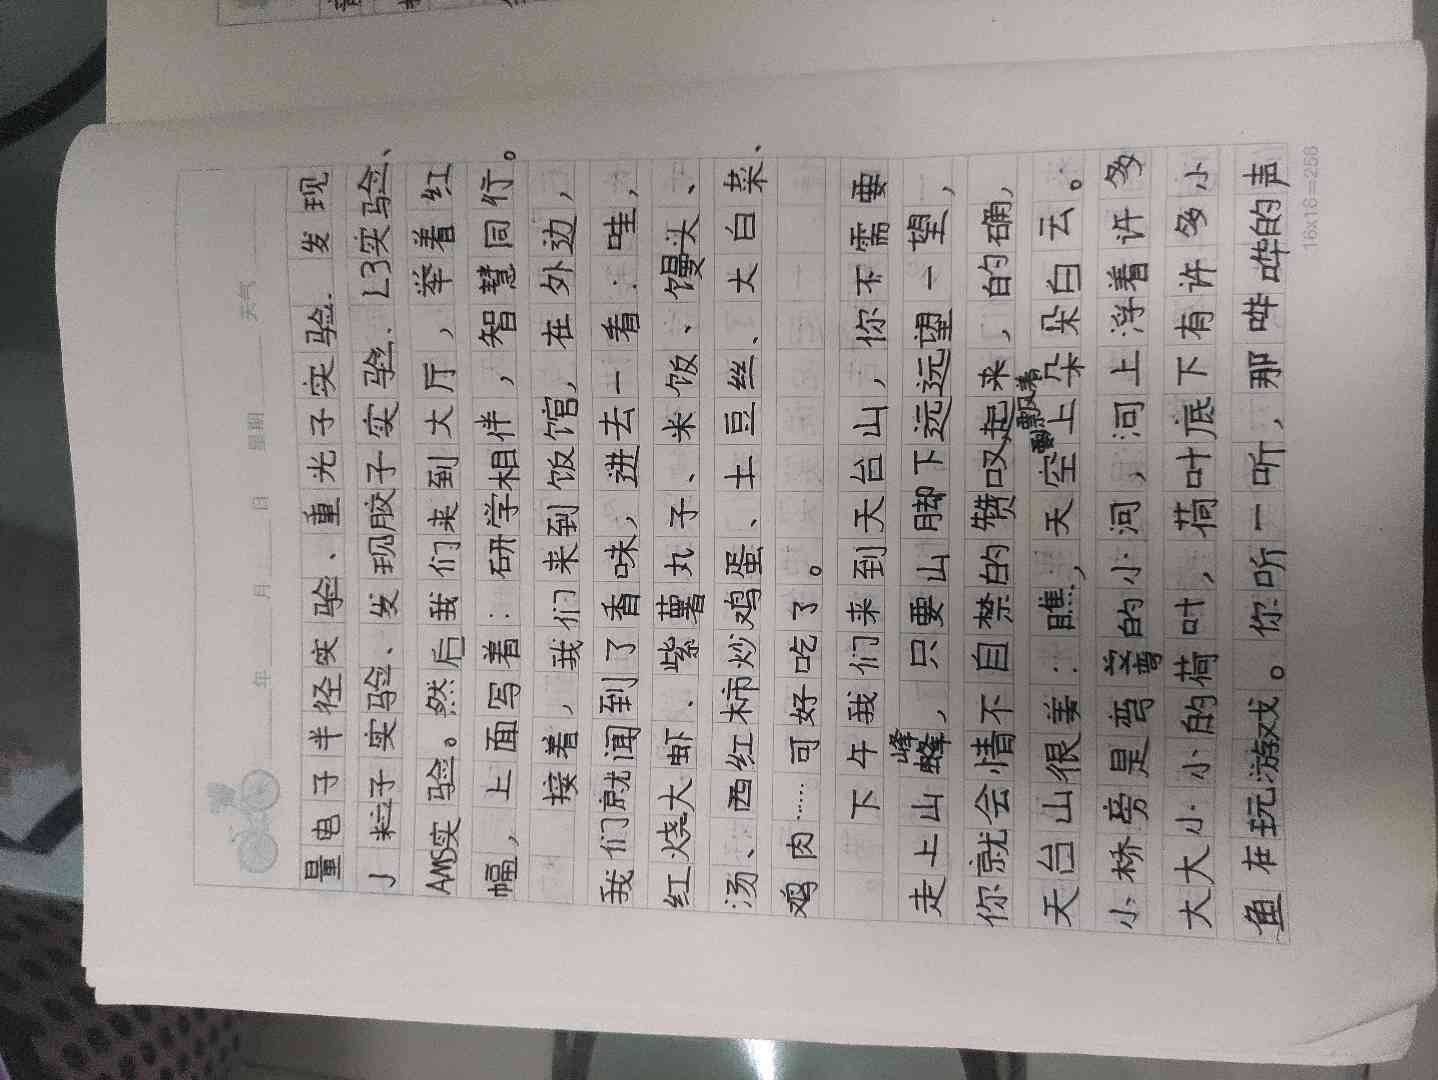 年 月 日 星期 天气
量电子半径实验、重光子实验、发现
J粒子实验、发现胶子实验、L3实验、
AMS实验。然后我们来到大厅，举着红
幅，上面写着：研学相伴，智慧同行。
接着，我们来到饭馆，在外边，
我们就闻到了香味，进去一看：哇，
红烧大虾、紫薯丸子、米饭、馒头、
汤、西红柿炒鸡蛋、土豆丝、大白菜、
鸡肉……可好吃了。
下午我们来到天台山，你不需要
走上山峰，只要山脚下远远望一望，
你就会情不自禁的赞叹起来，的确，
天台山很美：瞧，天空上飘着朵朵白云。
小桥旁是弯弯的小河，河上浮着许多
大大小小的荷叶，荷叶底下有许多小
鱼在玩游戏。你听一听，那哗哗的声
16x16=256